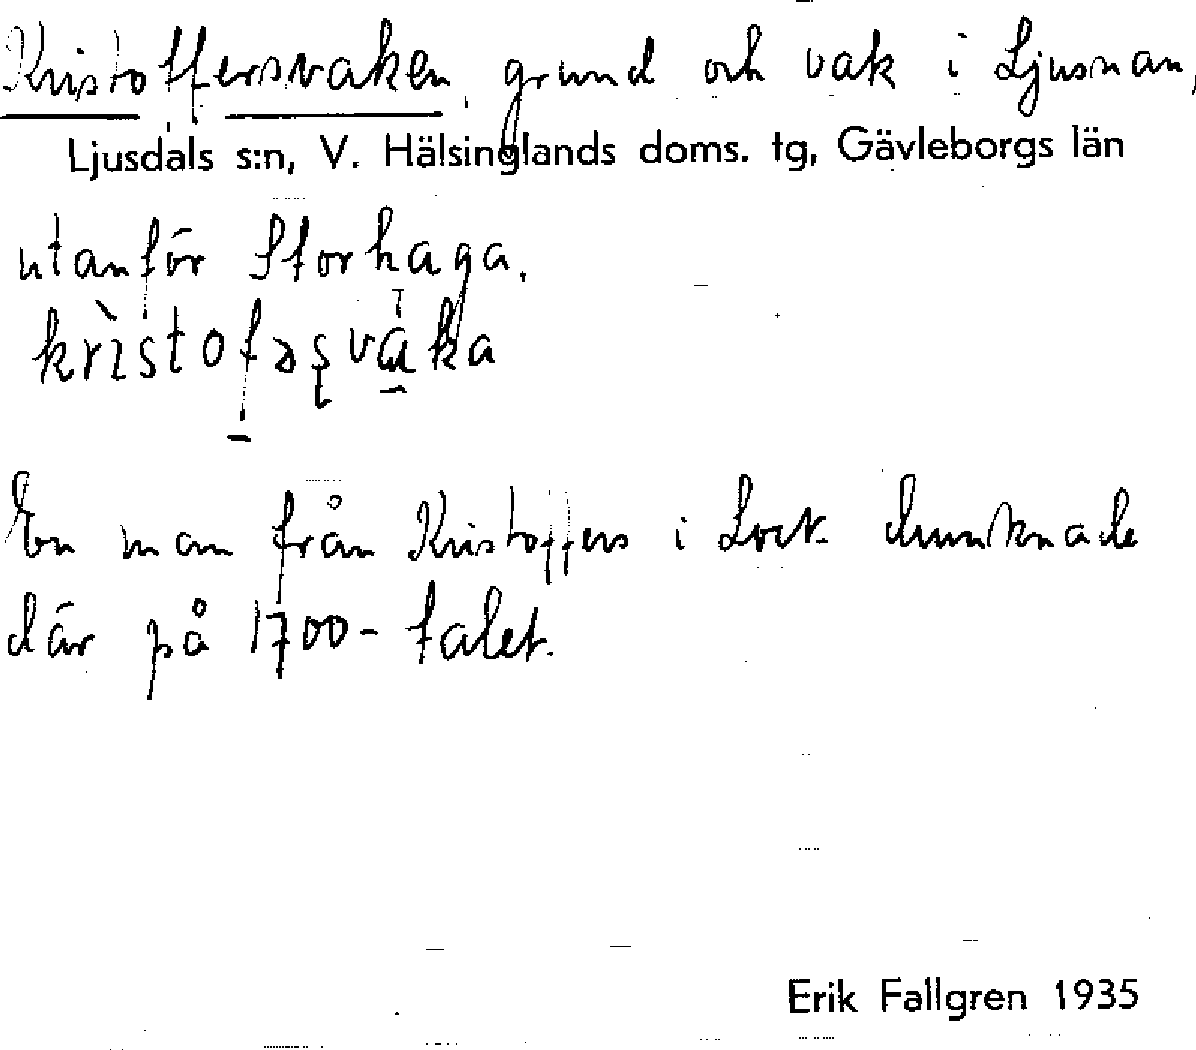 Kristoffersvaken, grund och vak i Ljusnan,
Ljusdals s:n, V. Hälsinglands doms. tg, Gävleborgs län
utanför Storhaga.
krìstofəʂvāka
En man från Kristoffers i Sort. drunknade
där på 1700-talet.
Erik Fallgren 1935